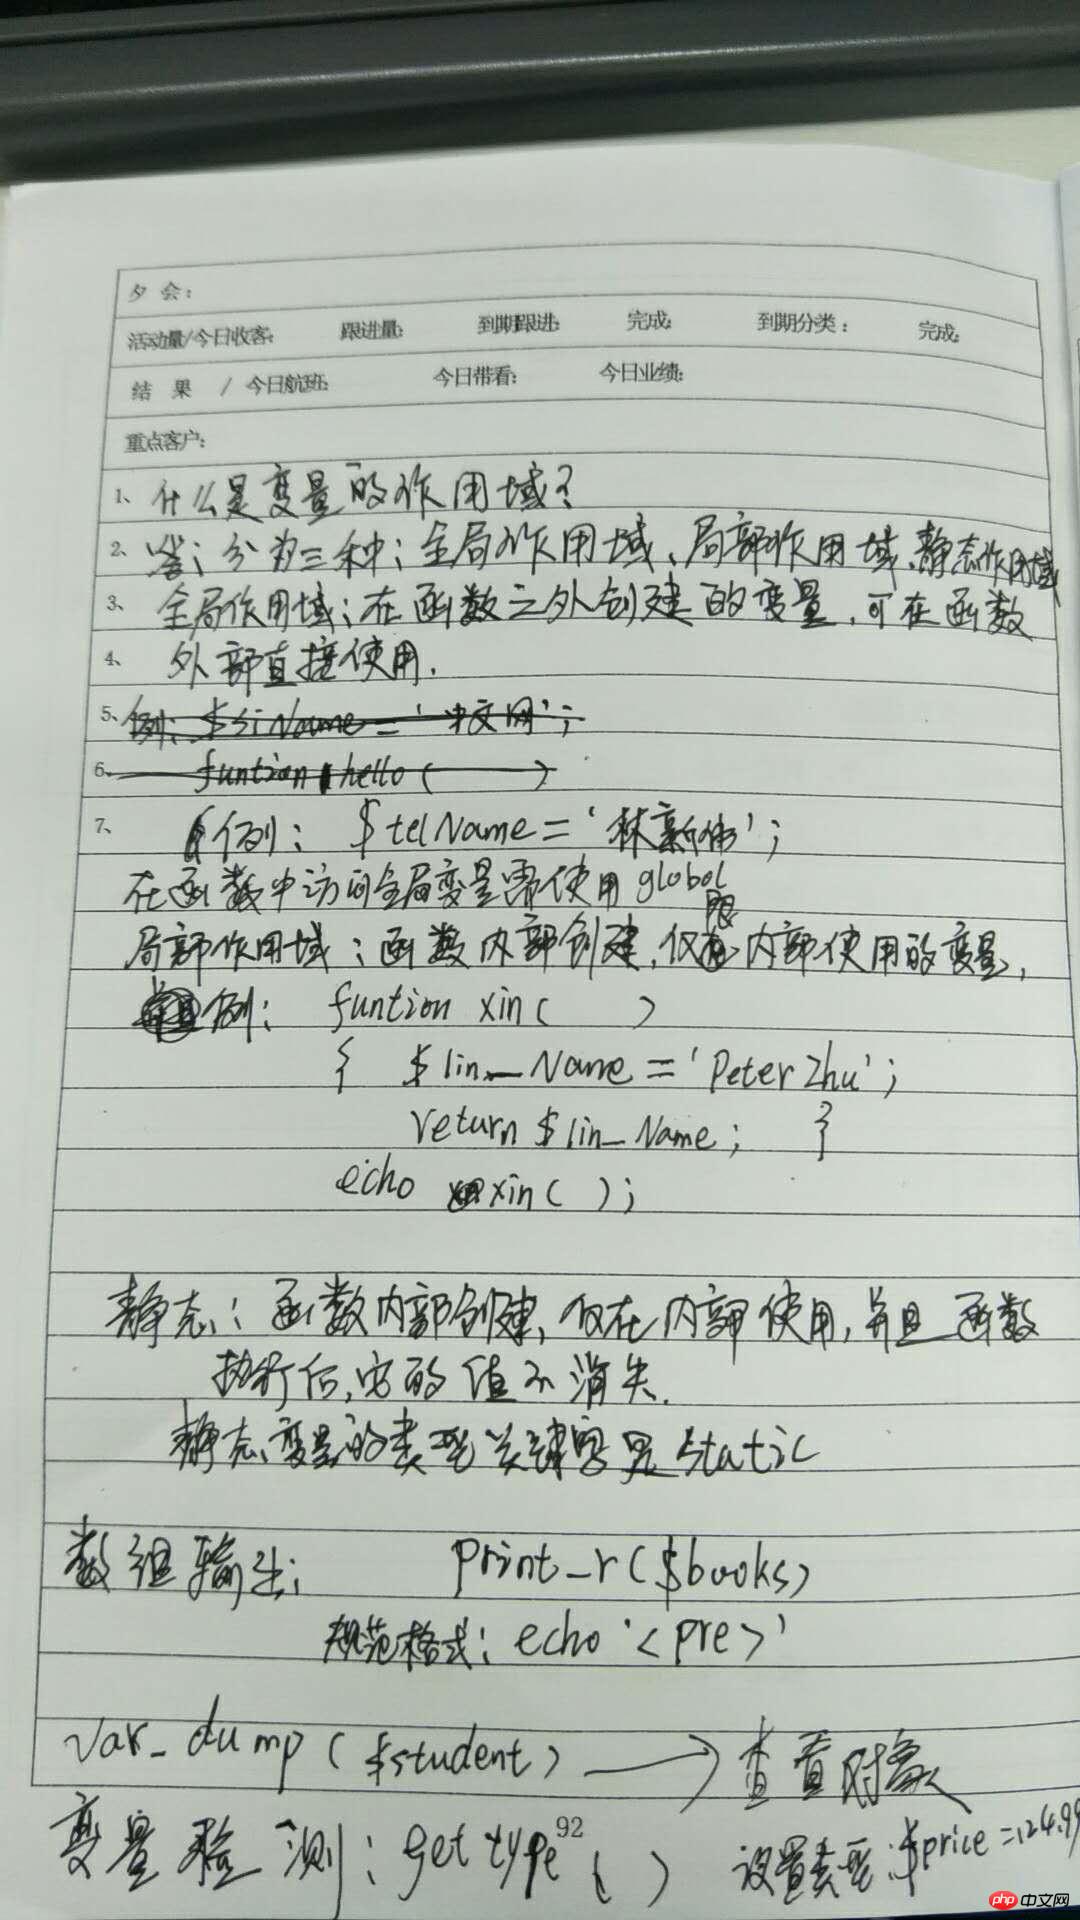 夕 会：
活动量/今日收客： 跟进量： 到期跟进： 完成： 到期分类： 完成：
结 果 / 今日航班： 今日带看： 今日业绩：
重点客户：
1、什么是变量的作用域？
2、答：分为三种：全局作用域、局部作用域、静态作用域
3、全局作用域：在函数之外创建的变量，可在函数
4、外部直接使用.
5、例：$siName='中文网';
6、funtion hello( )
7、例： $telName='林新伟';
在函数中访问全局变量需使用global
局部作用域：函数内部创建，仅限内部使用的变量，
例： funtion xin( )
{ $lin_Name='Peter Zhu';
return $lin_Name; }
echo xin( );
静态：函数内部创建，仅在内部使用，并且函数
执行后，它的值不消失.
静态变量的类型关键字是static
数组输出： print_r($books)
规范格式：echo '<pre>'
var_dump($student) → 查看对象
变量检测：gettype( ) 设置类型：$price=124.99
92
php 中文网